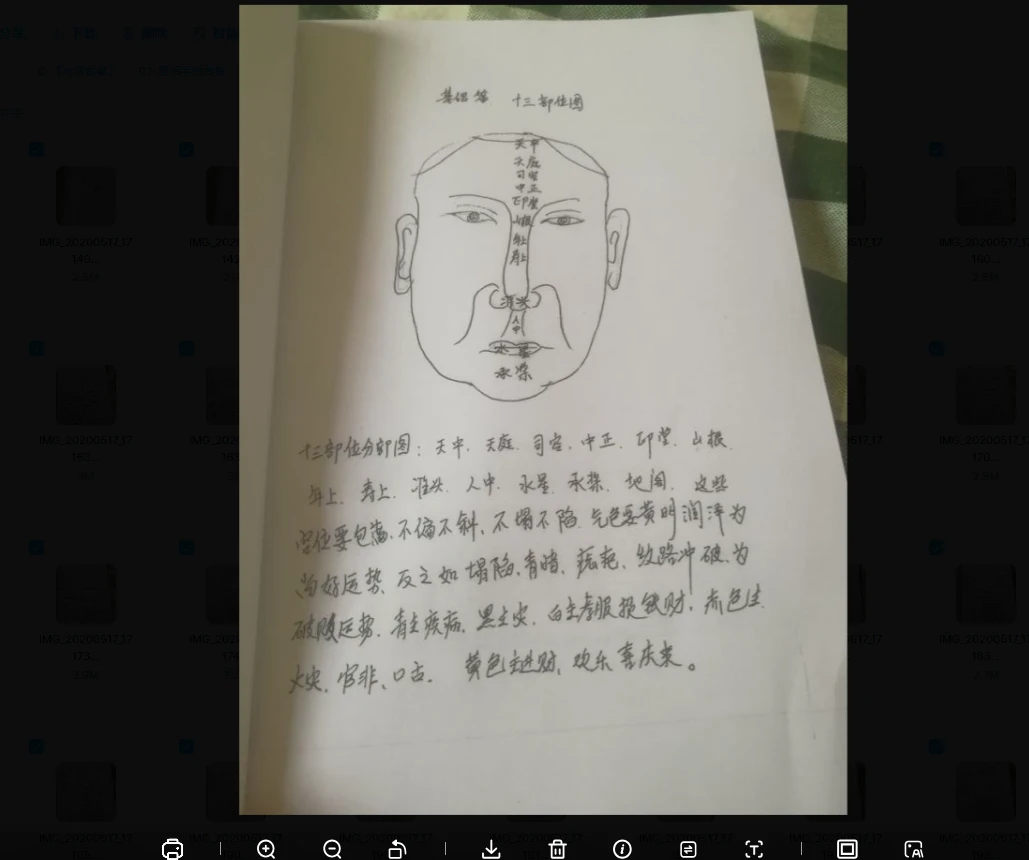 基础篇 十三部位图
天中
天庭
司空
中正
印堂
山根
年上
寿上
准头
人中
水星
承浆
十三部位分部图：天中、天庭、司空、中正、印堂、山根、
年上、寿上、准头、人中、水星、承浆、地阁、这些
部位要包满、不偏不斜、不塌不陷、气色要黄明润泽为
为好运势、反之如塌陷、青暗、痣疤、纹路冲破、为
破败运势、青主疾病、黑主灾、白主孝服损钱财、赤色主
火灾、官非、口舌、黄色主进财、欢乐喜庆来。
IMG_20200617_17
IMG_20200617_17
IMG_20200617_17
IMG_20200617_17